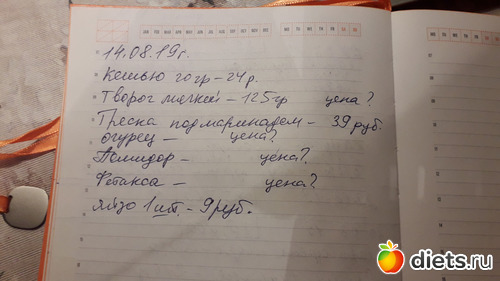 14.08.19г.
Кешью 20гр - 24р.
Творог мягкий - 125гр цена?
Треска под маринадом - 39 руб.
огурец - цена?
Помидор - цена?
Фетакса - цена?
яйцо 1 шт. - 9 руб.
diets.ru